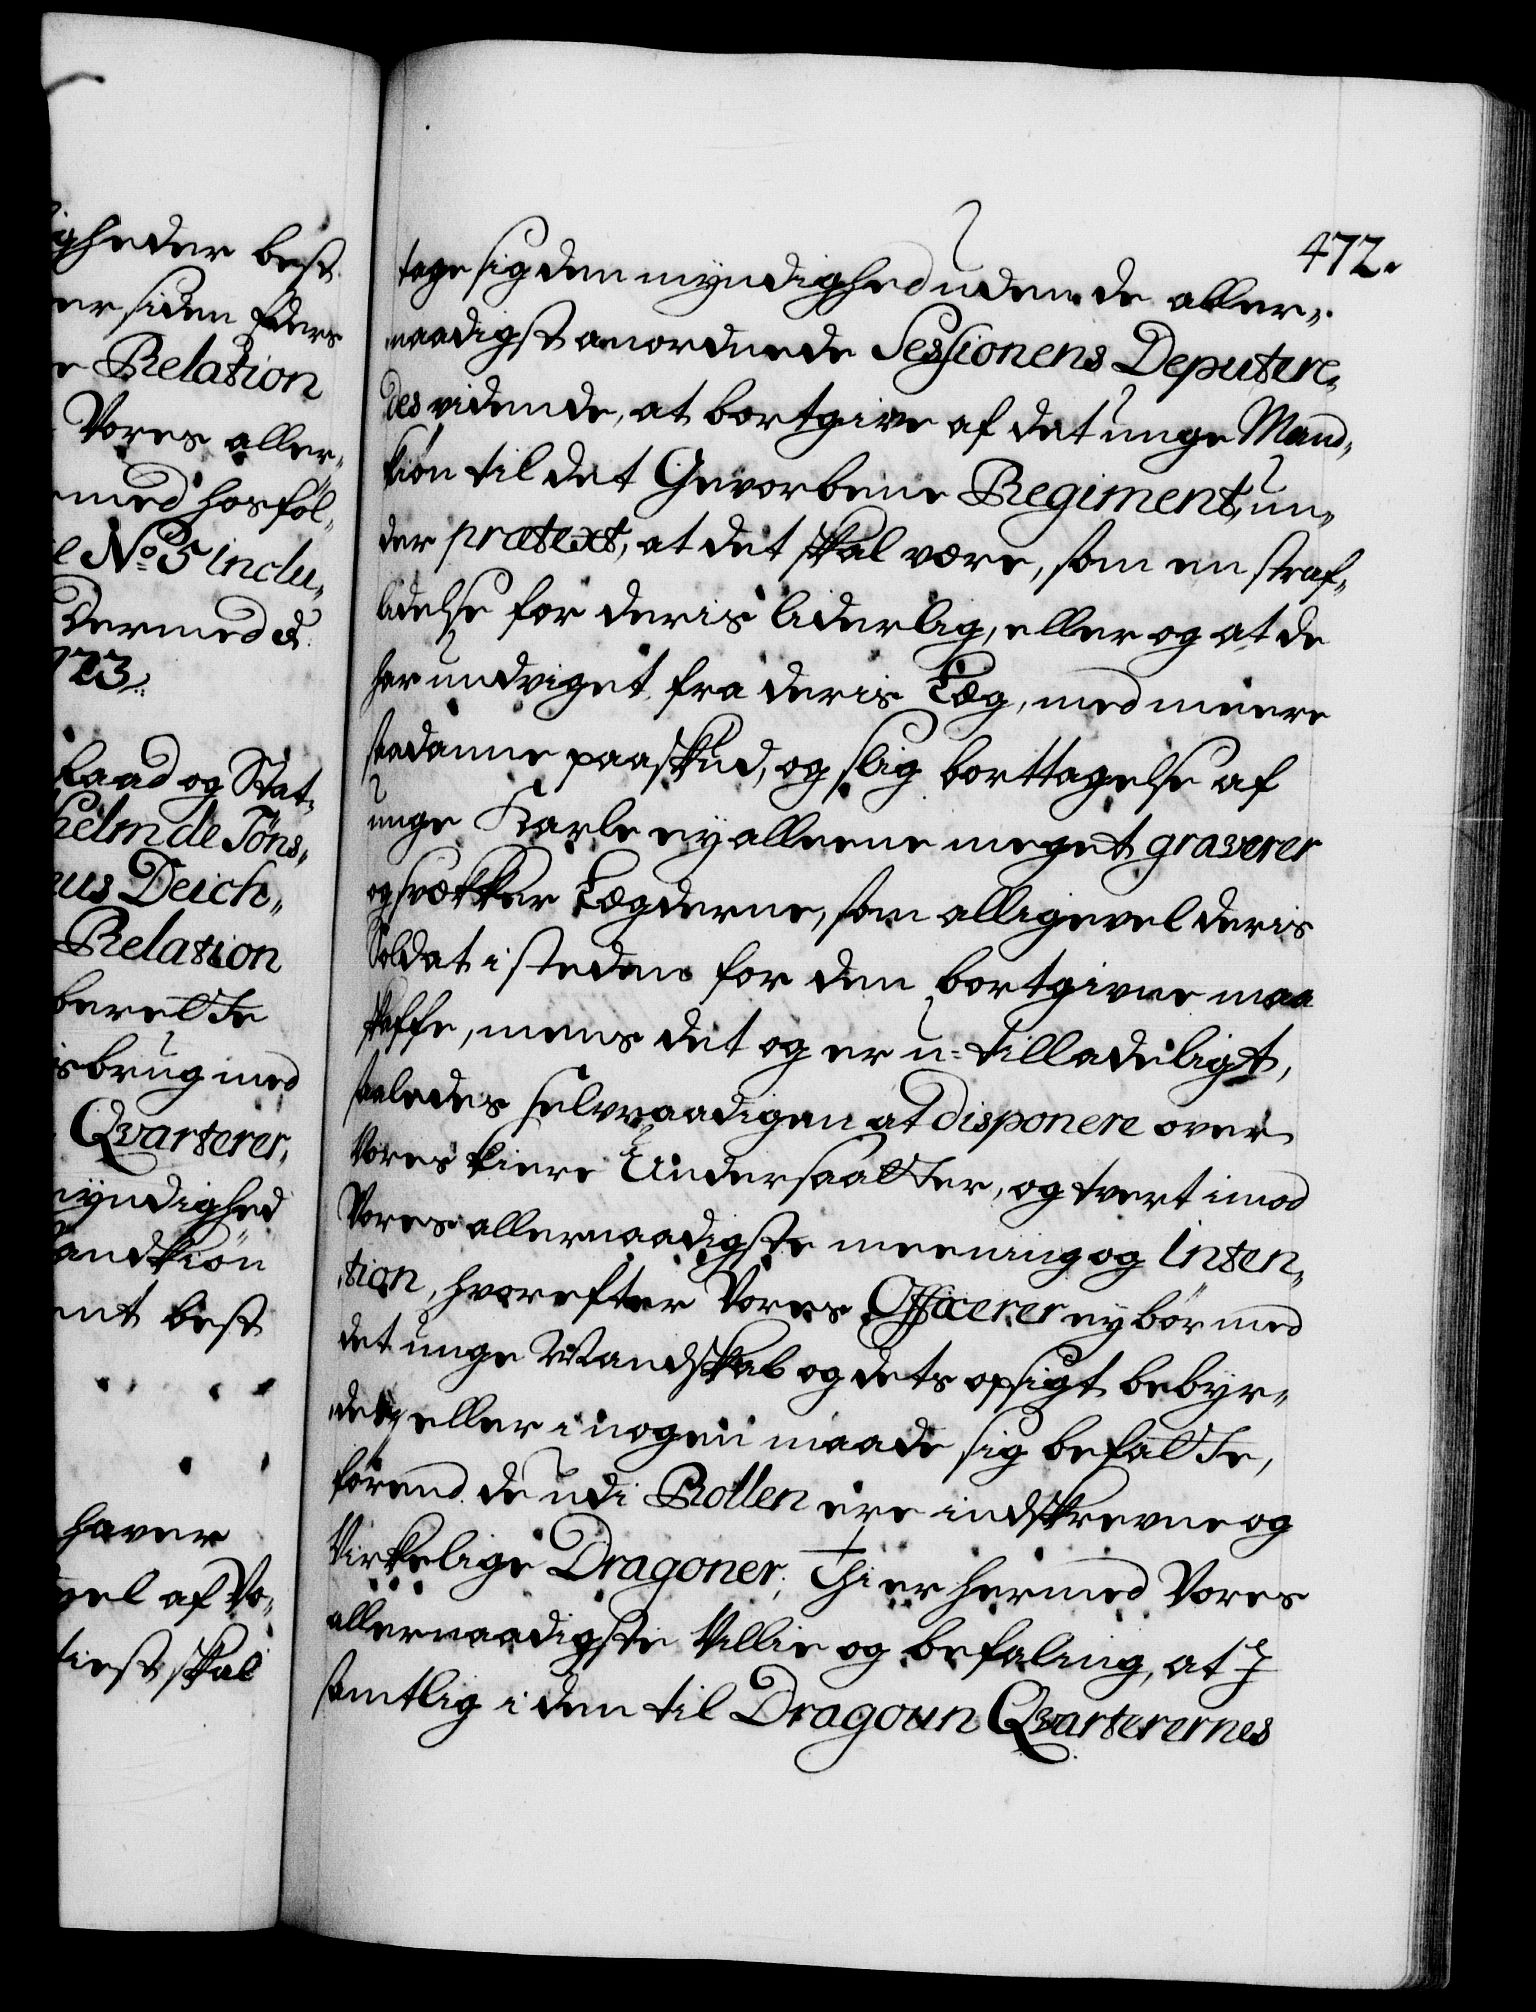 gheder best
er siden Eders
e Relation
Vores aller„
med hosföl„
No 5 inclu„
dermed d.
723.
Raad og Stat„
helm de Töns„
us Deich„
Relation
berette
isbrug med
Qvarterer,
myndighed
andkiön
ent best
haver
vel af Vo„
tiest skal
472.
tage sig den myndighed uden de aller„
naadigst anordnede Sessionens Deputere„
des vidende, at bortgive af det unge Mand„
kiön til det Gevorbene Regiment, un„
der prætext, at det skal være, som en straf„
lidelse for deris liderlig, eller og at de
har undviget fra deris Læg, med meere
saadanne paaskud, og slig borttagelse af
unge Karle ey alleene meget graverer
og svækker Lægderne, som alligevel deris
Soldat i steden for den bortgivne maa
skaffe, mens det og er u=tilladeligt,
saaledes selvraadigen at disponere over
Vores kiere Undersaatter, og tvert imod
Vores allernaadigste meening og Inten„
tion, hvorefter Vores Officerer ey bör med
det unge Mandskab og dets opsigt bebyr„
des, eller i nogen maade sig befatte,
förend de udi Rollen ere indskrevne og
Virkelige Dragoner; Thi er hermed Vores
allernaadigste Villie og befaling, at I
samtlig i den til Dragoun Qvarterernes